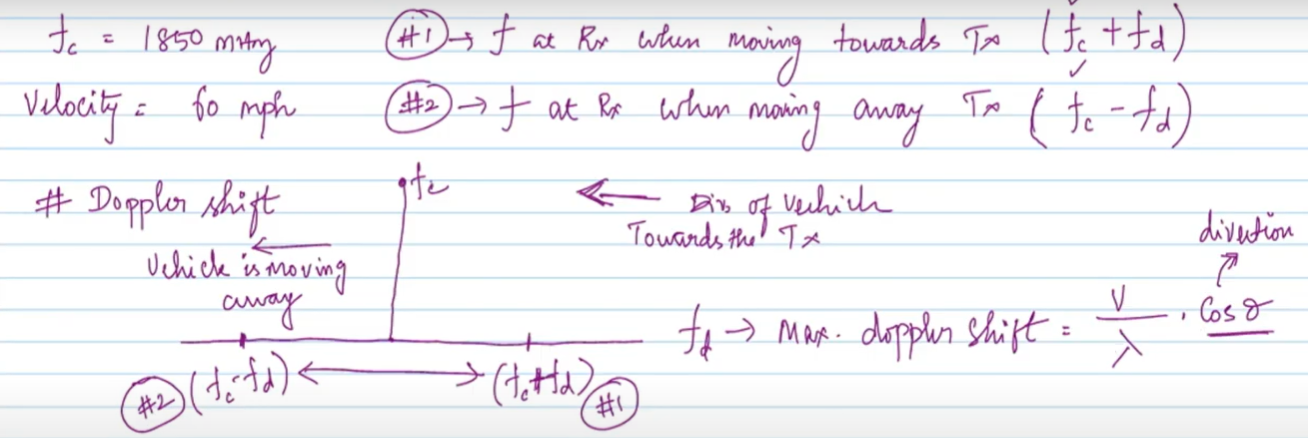 fc = 1850 MHz
#1 → f at Rx when moving towards Tx (fc + fd)
Velocity = 60 mph
#2 → f at Rx when moving away Tx (fc - fd)
# Doppler shift
fc
← Dir of Vechich
Towards the Tx
Vehicle is moving
away
direction
fd → Max. doppler shift = V/λ . Cos θ
#2 (fc-fd) ↔ (fc+fd) #1